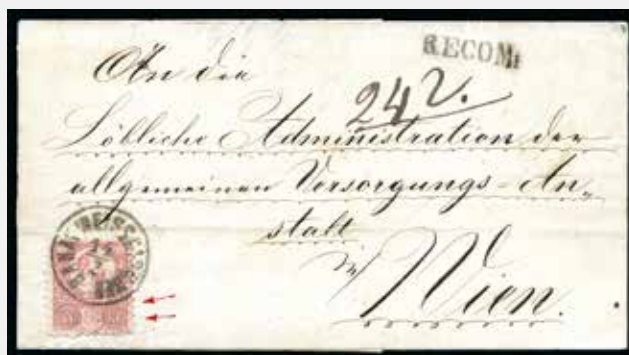 RECOM:
An die
24 2.
Löbliche Administration der
allgemeinen Versorgungs-An-
stalt
in Wien.